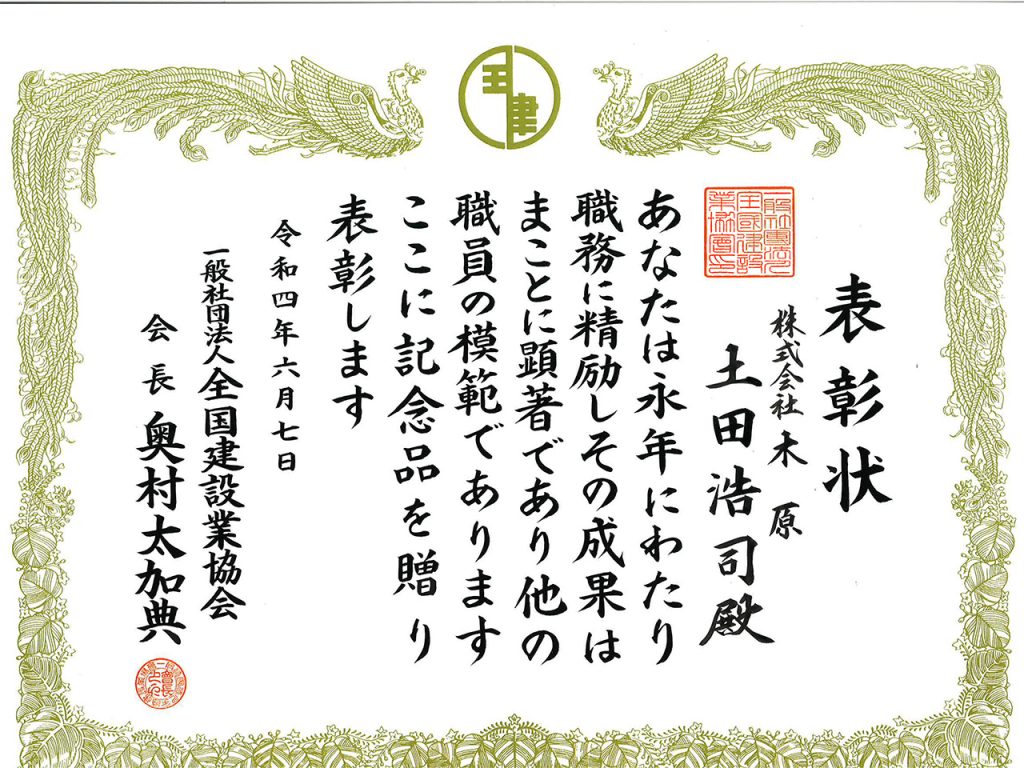 表彰状
株式会社 木原
土田浩司殿
あなたは永年にわたり
職務に精励しその成果は
まことに顕著であり他の
職員の模範であります
ここに記念品を贈り
表彰します
令和四年六月七日
一般社団法人全国建設業協会
会長 奥村太加典
全建
一般社団法人
全国建設
業協会印